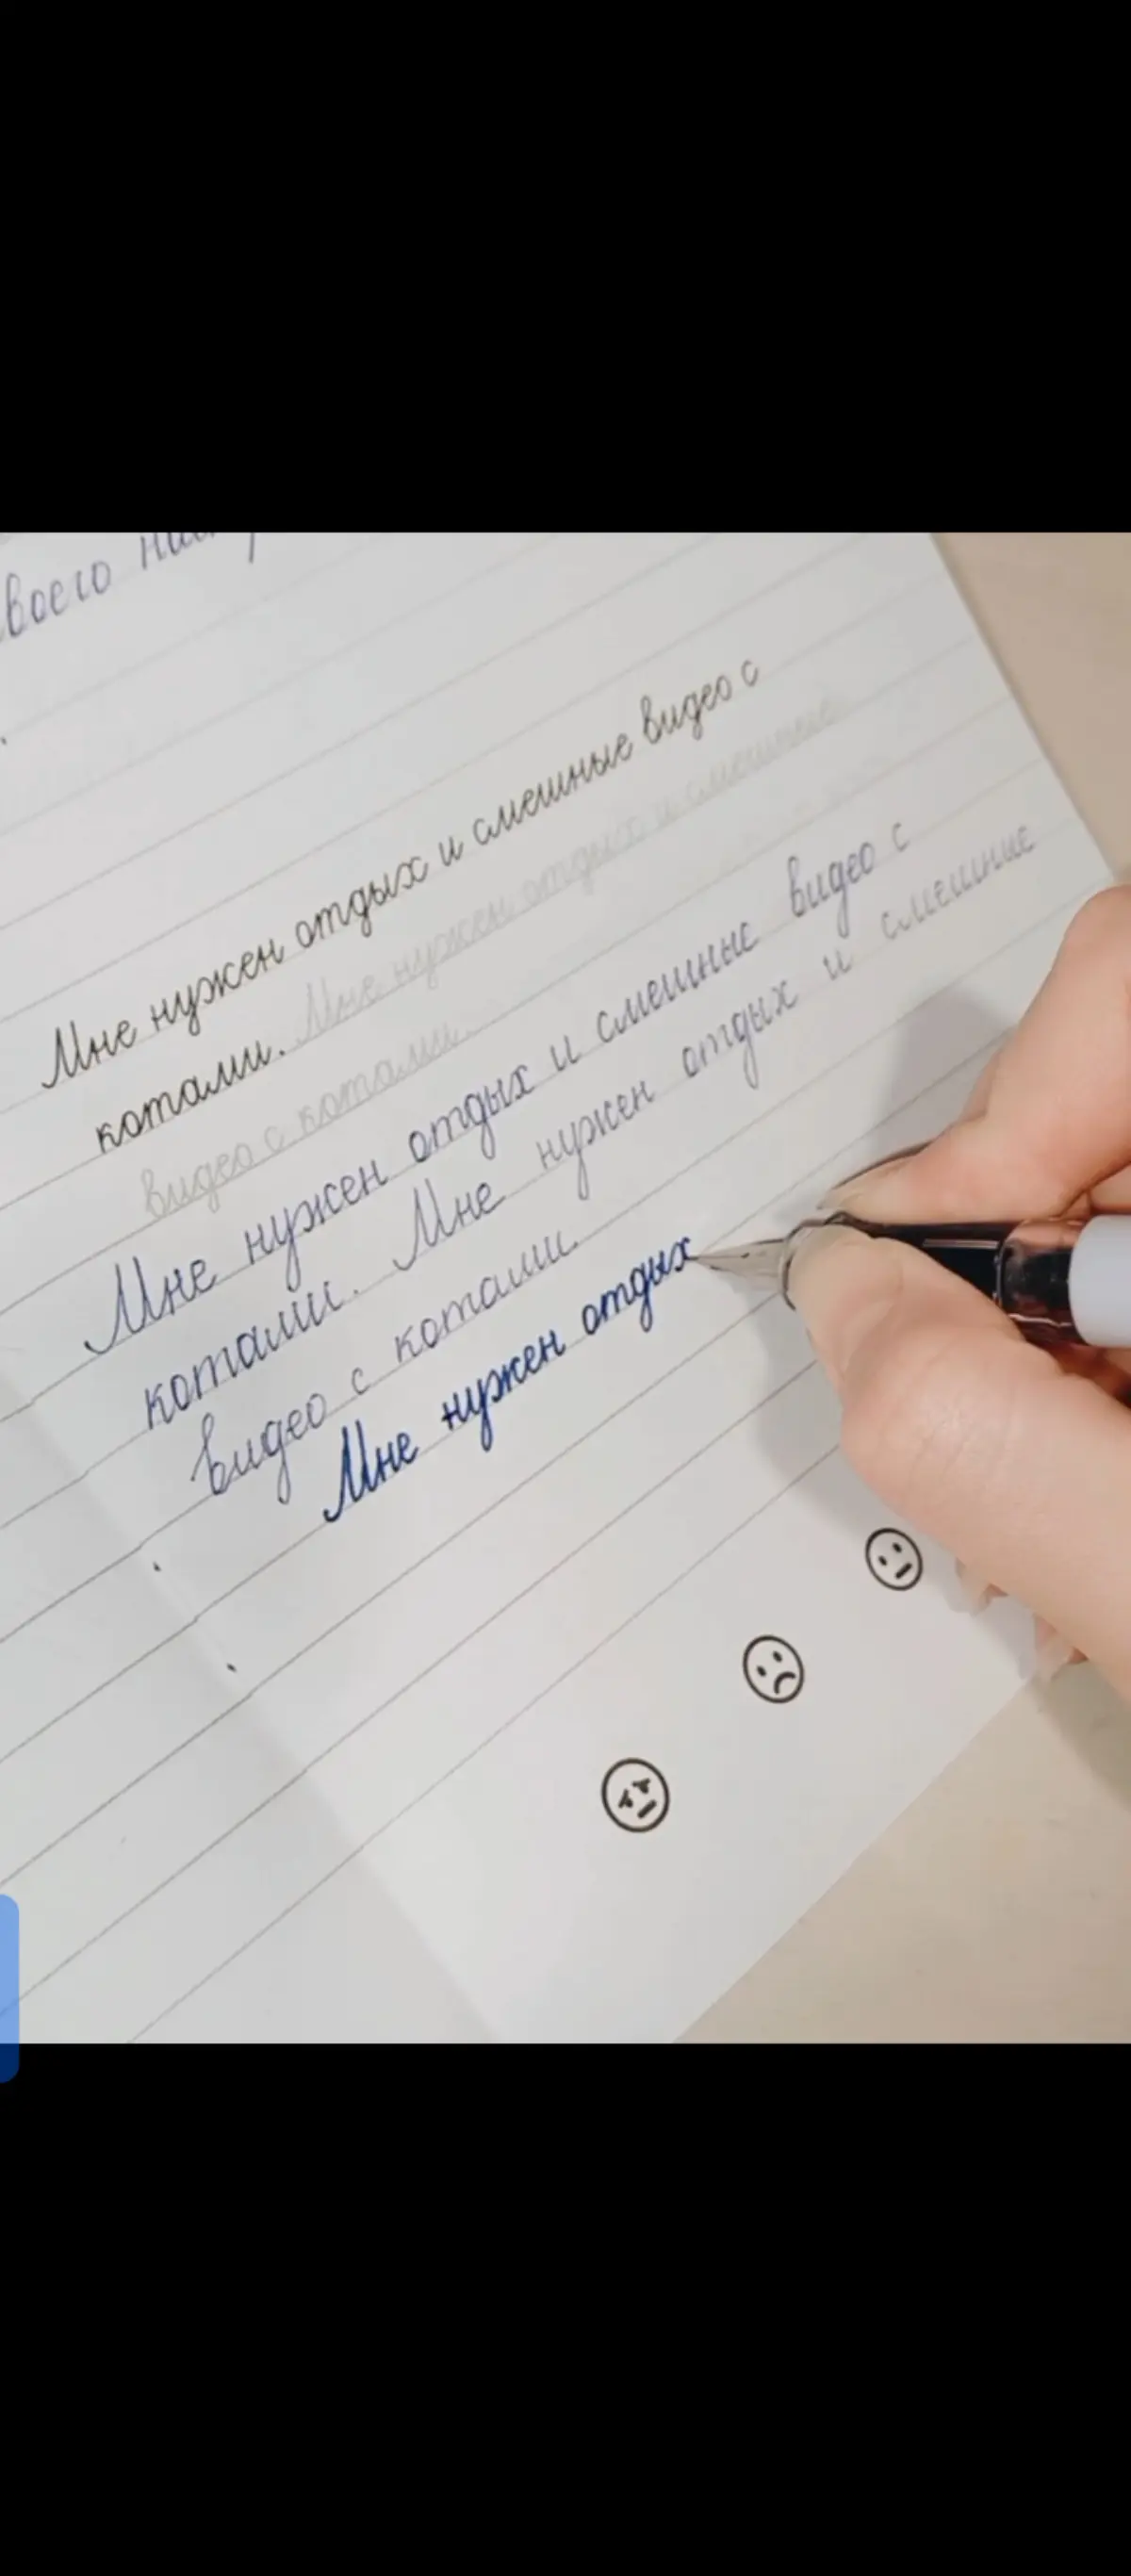 воего
Мне нужен отдых и смешные видео с
котами. Мне нужен отдых и смешные
видео с котами.
Мне нужен отдых и смешные видео с
котами. Мне нужен отдых и смешные
видео с котами.
Мне нужен отдых